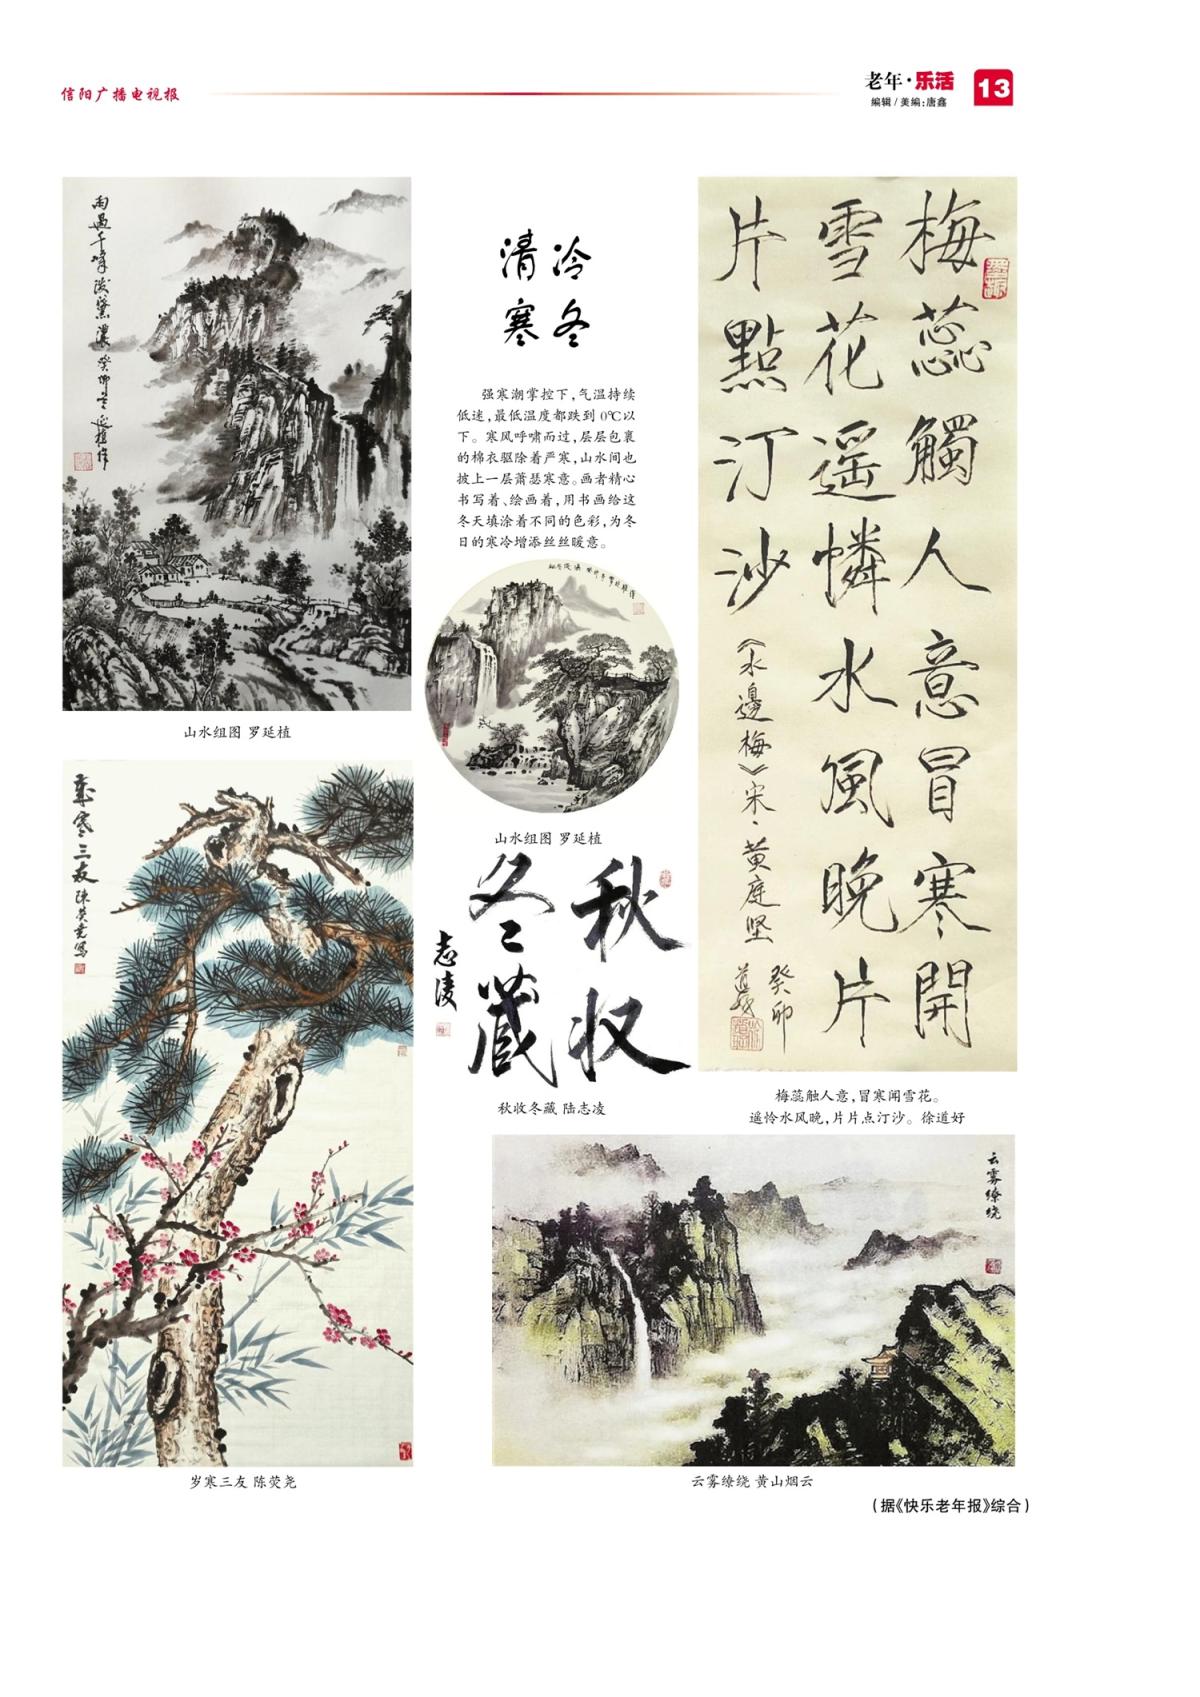 信阳广播电视报
老年·乐活
编辑/美编:唐鑫
13
雨过千峰泼黛浓 癸卯
清冷
寒冬
强寒潮掌控下,气温持续
低迷,最低温度都跌到 0℃以
下。寒风呼啸而过,层层包裹
的棉衣驱除着严寒,山水间也
披上一层萧瑟寒意。画者精心
书写着、绘画着,用书画给这
冬天填涂着不同的色彩,为冬
日的寒冷增添丝丝暖意。
梅蕊觸人意冒寒開
雪花遥憐水風晚片
片點汀沙
《水邊梅》宋·黄庭坚
癸卯
山水组图 罗延植
山水组图 罗延植
岁寒三友 陈荧尧写
秋收
冬藏
志凌
秋收冬藏 陆志凌
梅蕊触人意,冒寒闻雪花。
遥怜水风晚,片片点汀沙。徐道好
云雾缭绕
岁寒三友 陈荧尧
云雾缭绕 黄山烟云
(据《快乐老年报》综合)